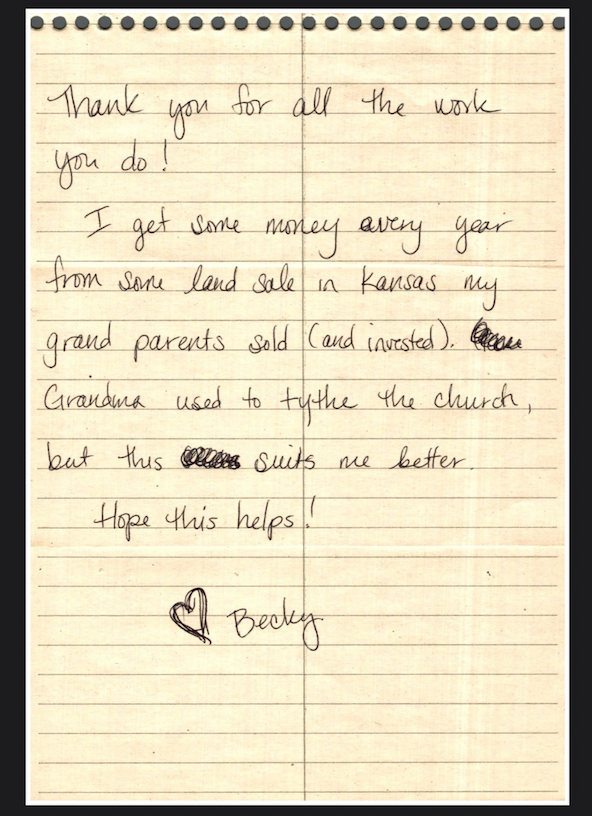 Thank you for all the work
you do!
I get some money every year
from some land sale in Kansas my
grand parents sold (and invested).
Grandma used to tythe the church,
but this suits me better.
Hope this helps!
♡ Becky